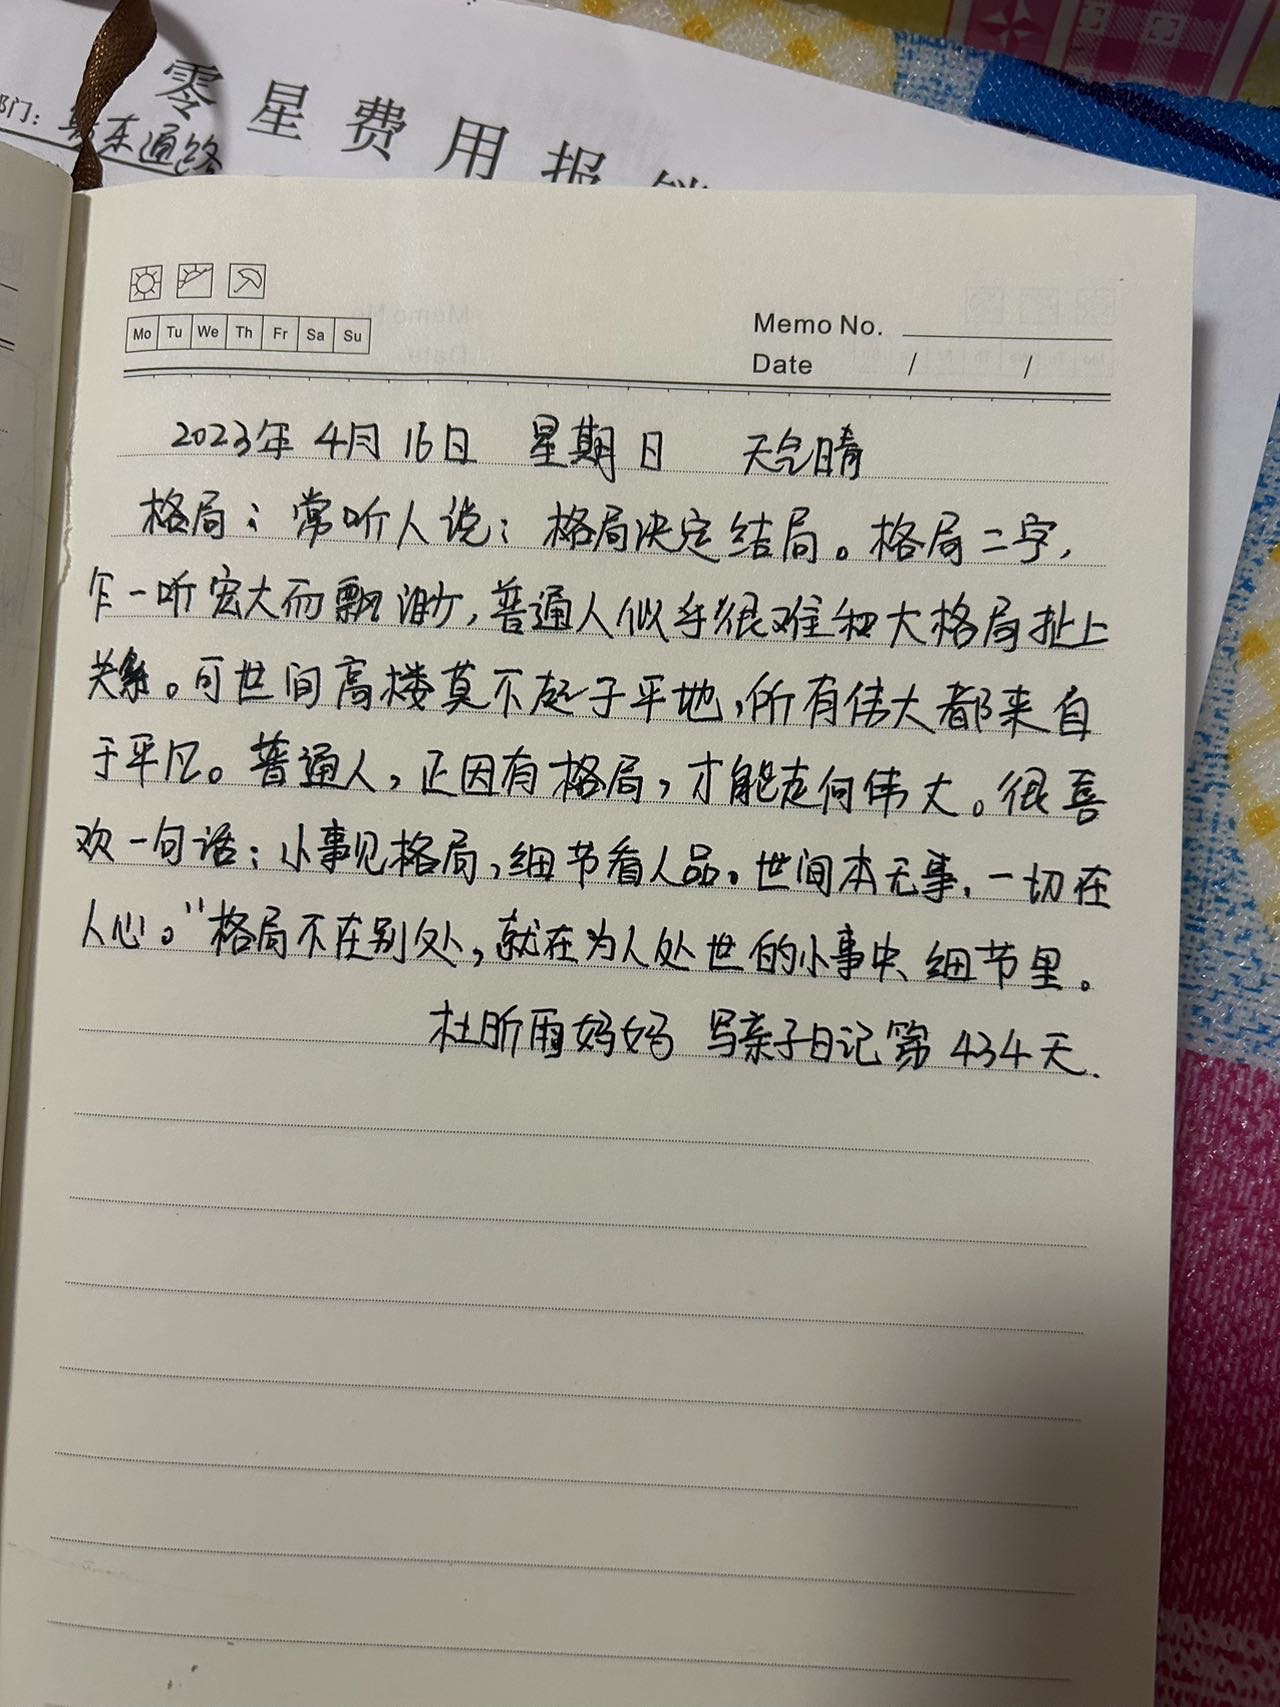 零星费用报销
部门：
东通路
Mo Tu We Th Fr Sa Su
Memo No.
Date / /
2023年 4月 16日 星期日 天气晴
格局：常听人说：格局决定结局。格局二字，
乍一听宏大而飘渺，普通人似乎很难和大格局扯上
关系。可世间高楼莫不起于平地，所有伟大都来自
于平凡。普通人，正因有格局，才能走向伟大。很喜
欢一句话：小事见格局，细节看人品。世间本无事，一切在
人心。"格局不在别处，就在为人处世的小事中 细节里。
杜昕雨妈妈 写亲子日记第 434天.